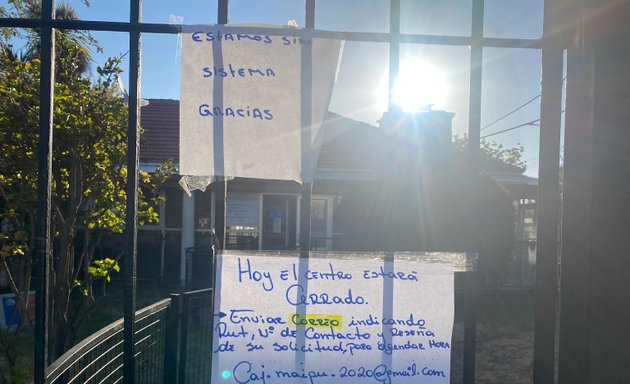 ESTAMOS SIN
SISTEMA
GRACIAS
HOY EL CENTRO ESTARÁ
CERRADO.
→ ENVIAR CORREO indicando
Rut, Nº de Contacto y RESEÑA
de su solicitud, para agendar HORA
. Caj.maipu.2020@gmail.com